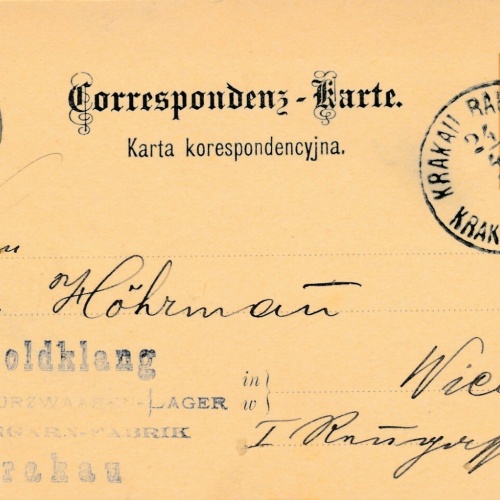 Correspondenz-Karte.
Karta korespondencyjna.
KRAKAU BA
24
KRAK
Höhrmann
oldklang
in
w
Wie
URZWAAREN-LAGER
GARN-FABRIK
I
rakau